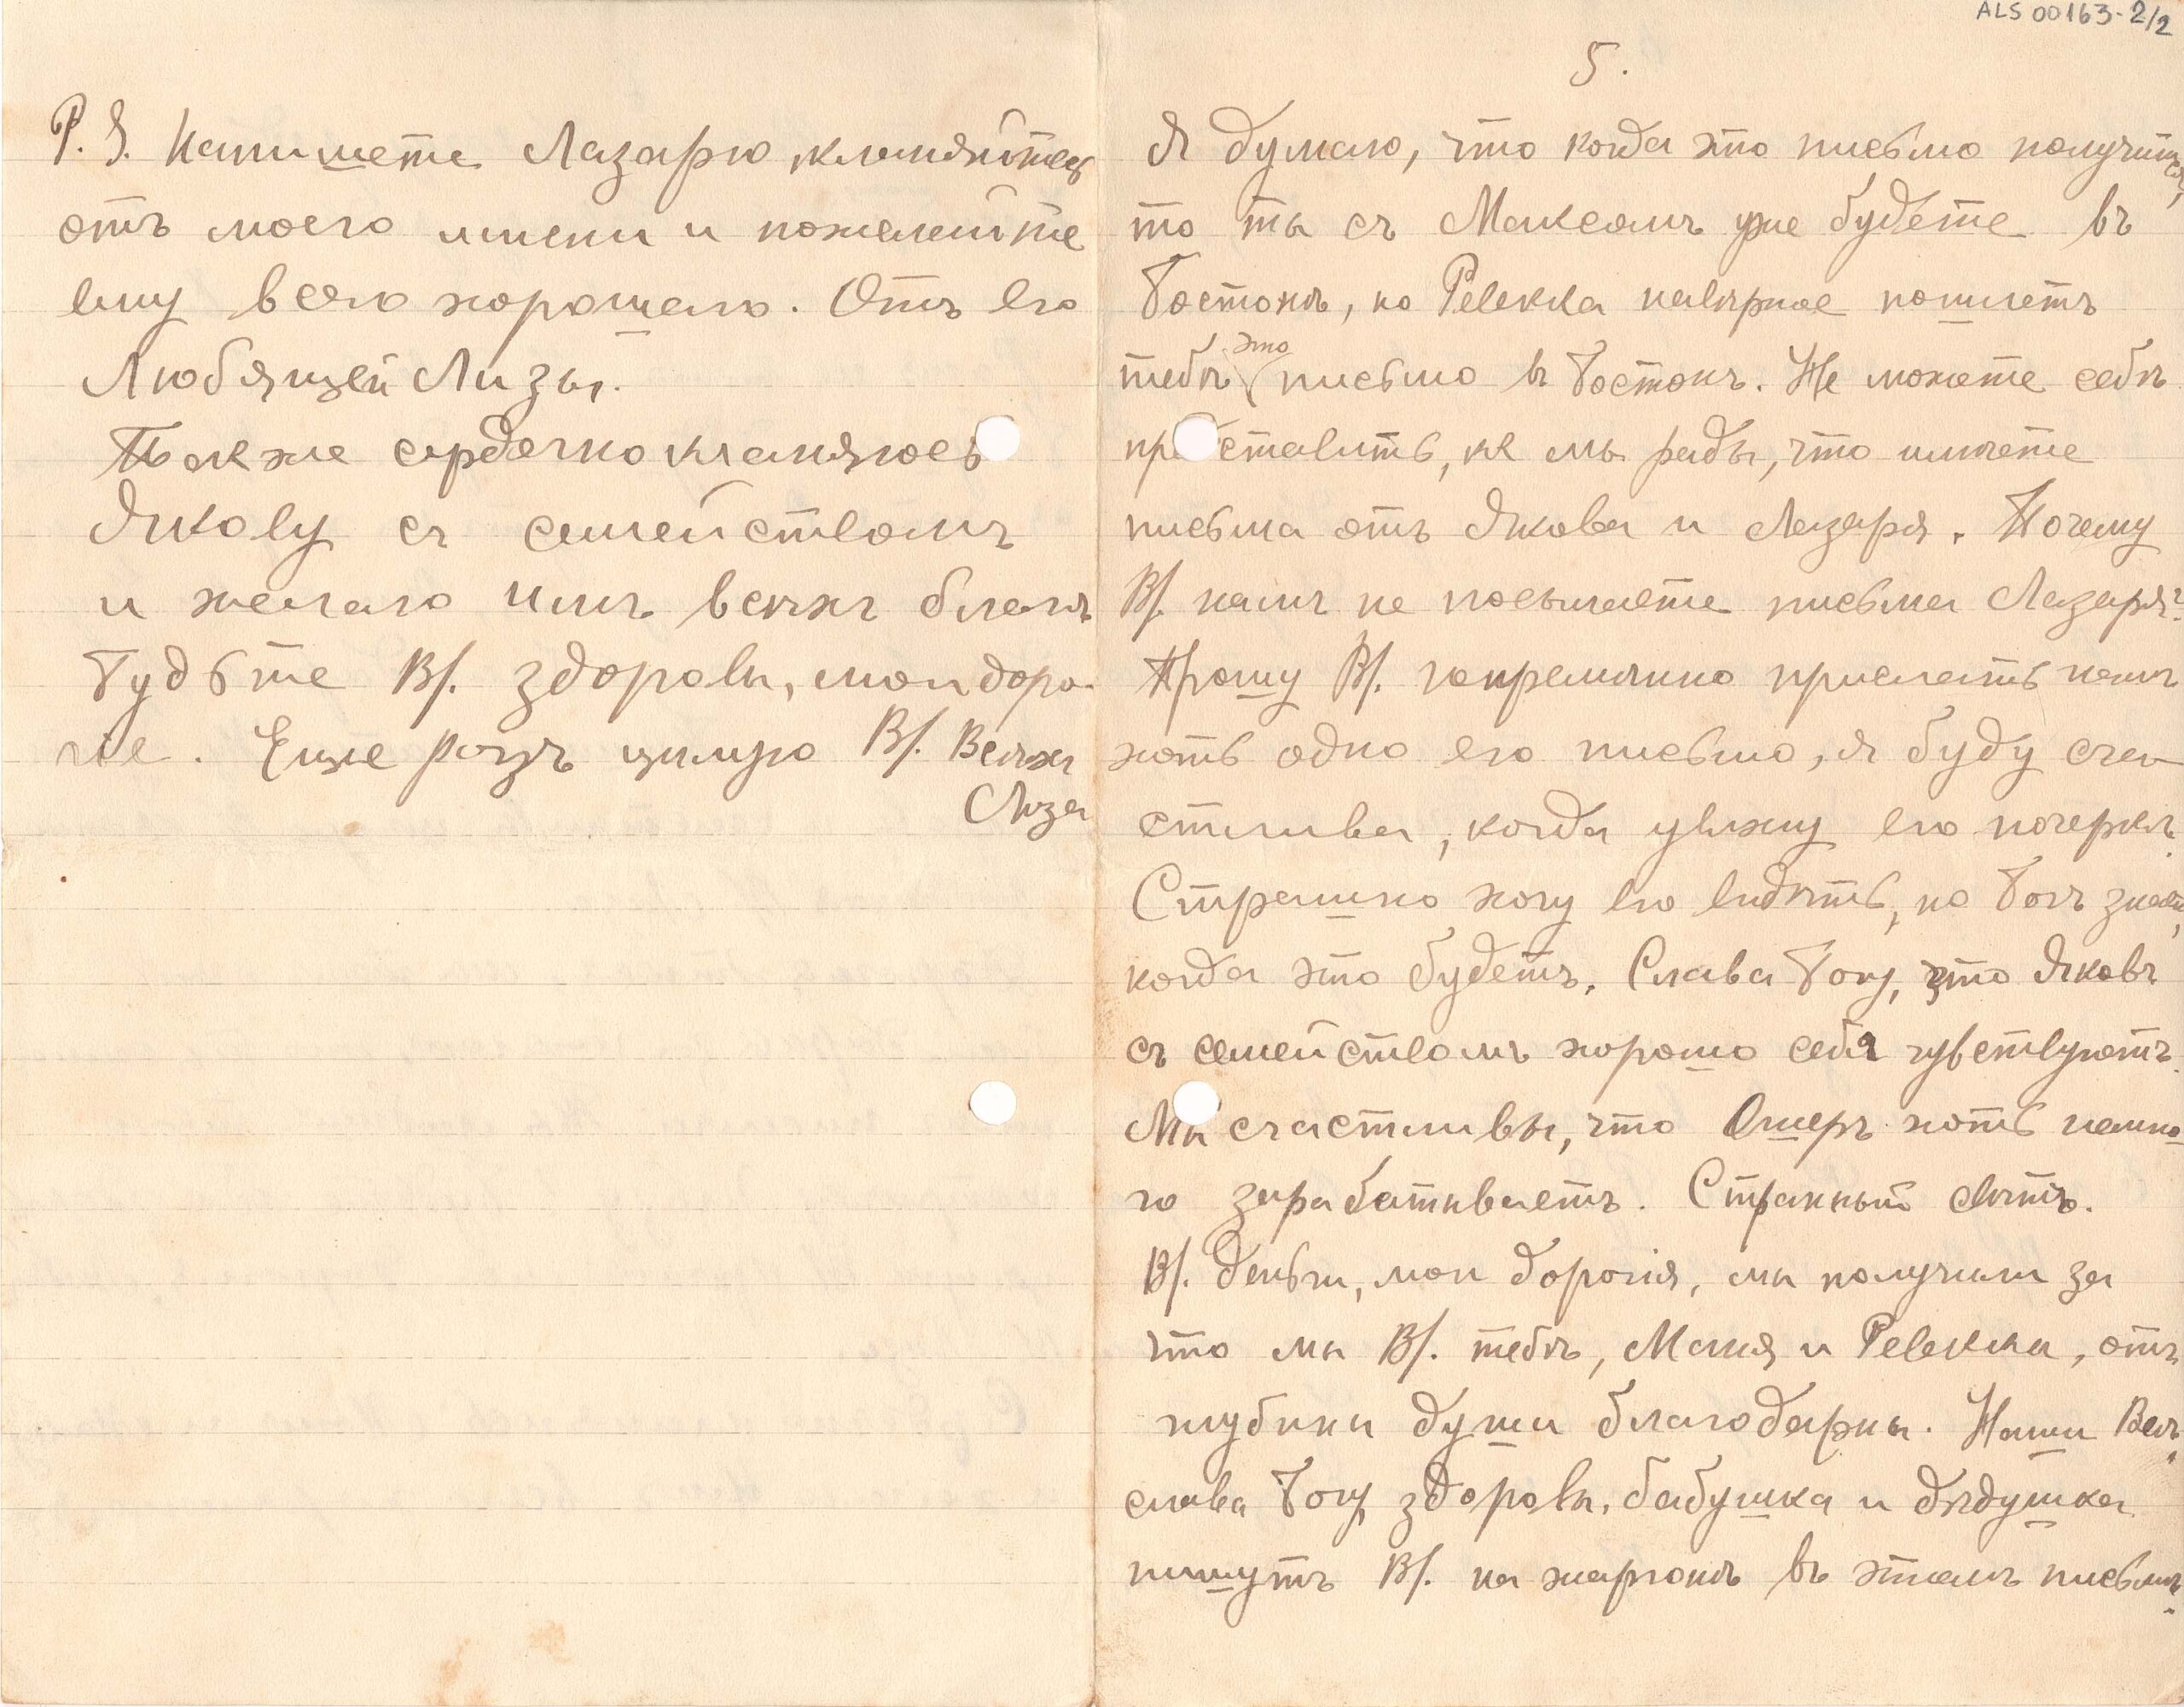 ALS 00163-2/2
P. S. Напишете Лазарю, кланяйтесь
отъ моего имени и пожелайте
ему всего хорошаго. Отъ его
Любящей Лизы.
Также сердечно кланяюсь
Якову съ семействомъ
и желаю имъ всѣхъ благъ
Будьте В/. здоровы, мои доро-
гіе. Еще разъ цѣлую В/. Всѣхъ
Лиза
5.
Я думаю, что когда это письмо получится,
то ты съ Максомъ уже будете въ
Бостонѣ, но Ревекка навѣрное пошлетъ
тебѣ это письмо в Бостонъ. Не можете себѣ
представить, как мы рады, что имѣете
письма отъ Якова и Лазаря. Почему
В/. намъ не посылаете письма Лазаря?
Прошу В/. непремѣнно прислать намъ
хоть одно его письмо, я буду сча-
стлива, когда увижу его почеркъ.
Страшно хочу его видѣть, но Богъ знаетъ,
когда это будетъ. Слава Богу, что Яковъ
съ семействомъ хорошо себя чувствуютъ.
Мы счастливы, что Ошеръ хоть немно-
го зарабатываетъ. Странный свѣтъ.
В/. деньги, мои дорогія, мы получили за
что мы В/. тебѣ, Маня и Ревекка, отъ
глубины души благодарны. Наши Всѣ,
слава Богу здоровы, бабушка и дѣдушка
пишутъ В/. на жаргонѣ въ этомъ письмѣ.